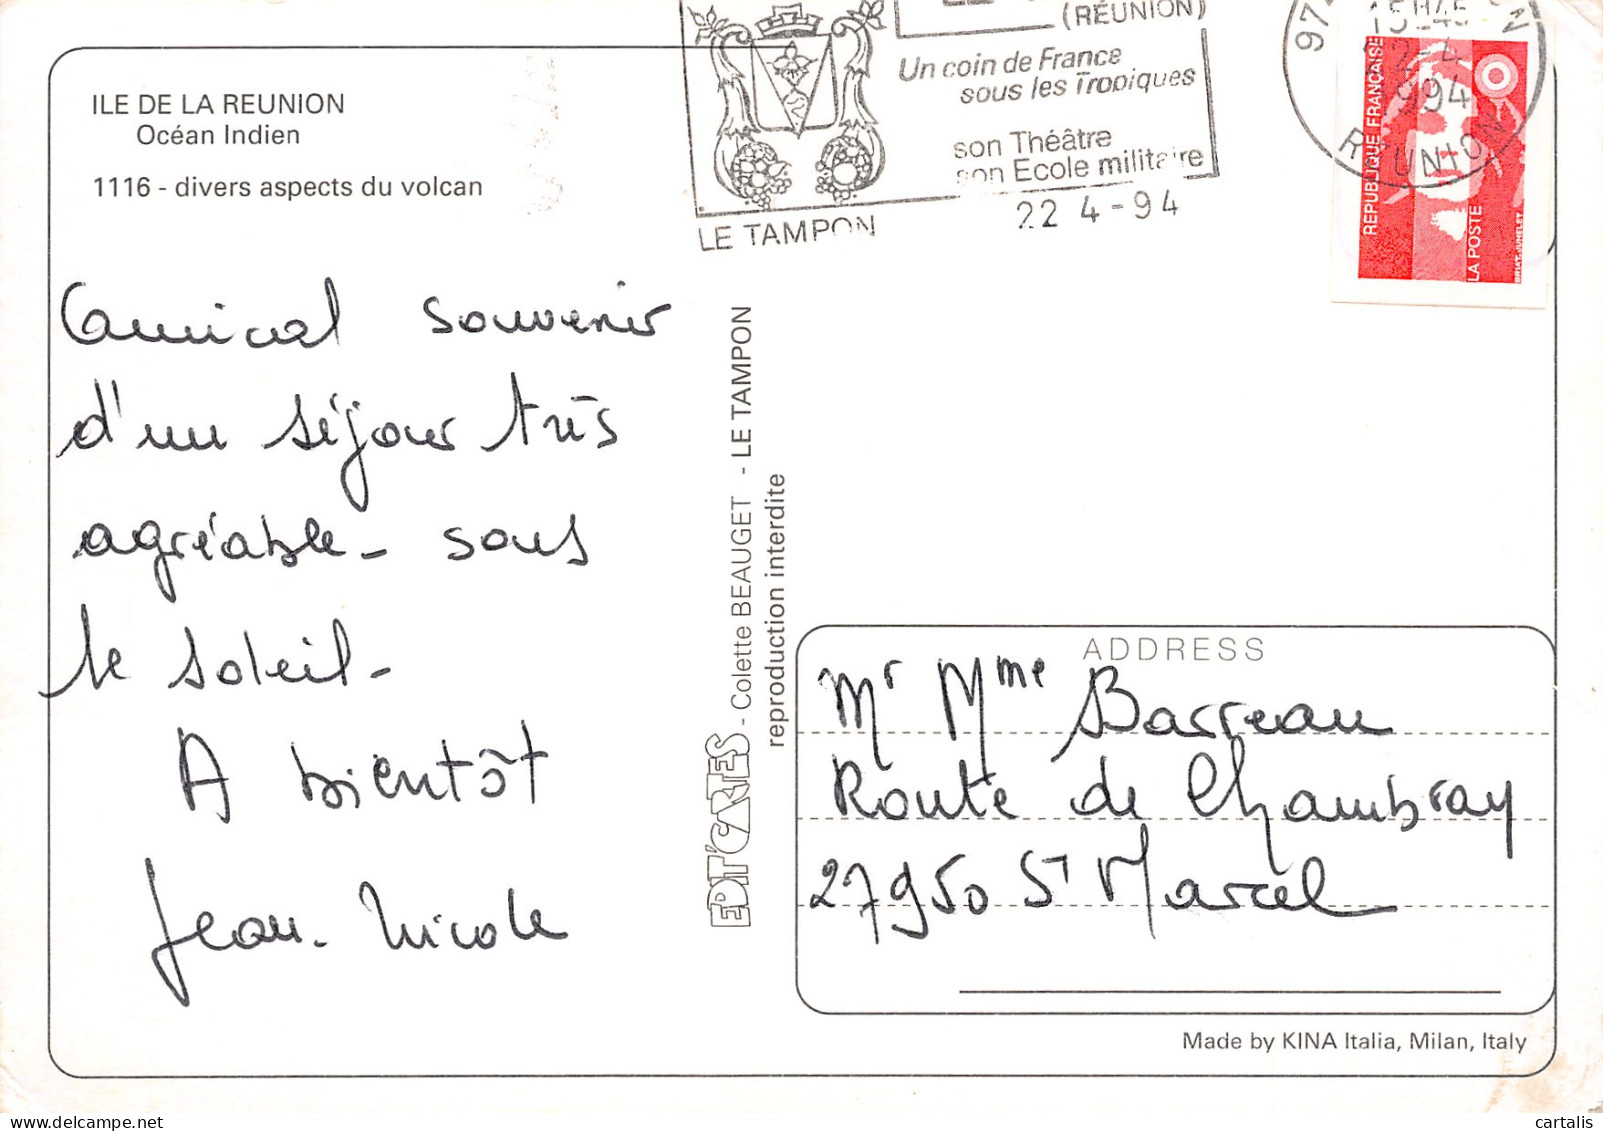 ILE DE LA REUNION
Océan Indien
1116 - divers aspects du volcan
(RÉUNION)
Un coin de France
sous les Tropiques
son Théâtre
son Ecole militaire
LE TAMPON
22 4-94
15H45
22-4
994
REUNION
REPUBLIQUE FRANÇAISE
LA POSTE
BRIAT-JUMELET
Amical souvenir
d'un séjour très
agréable - sous
le soleil -
A bientôt
Jean. Nicole
EDIT'CARTES - Colette BEAUGET - LE TAMPON
reproduction interdite
ADDRESS
Mr Mme Barreau
Route de Chambray
27950 St Marcel
Made by KINA Italia, Milan, Italy
cartalis